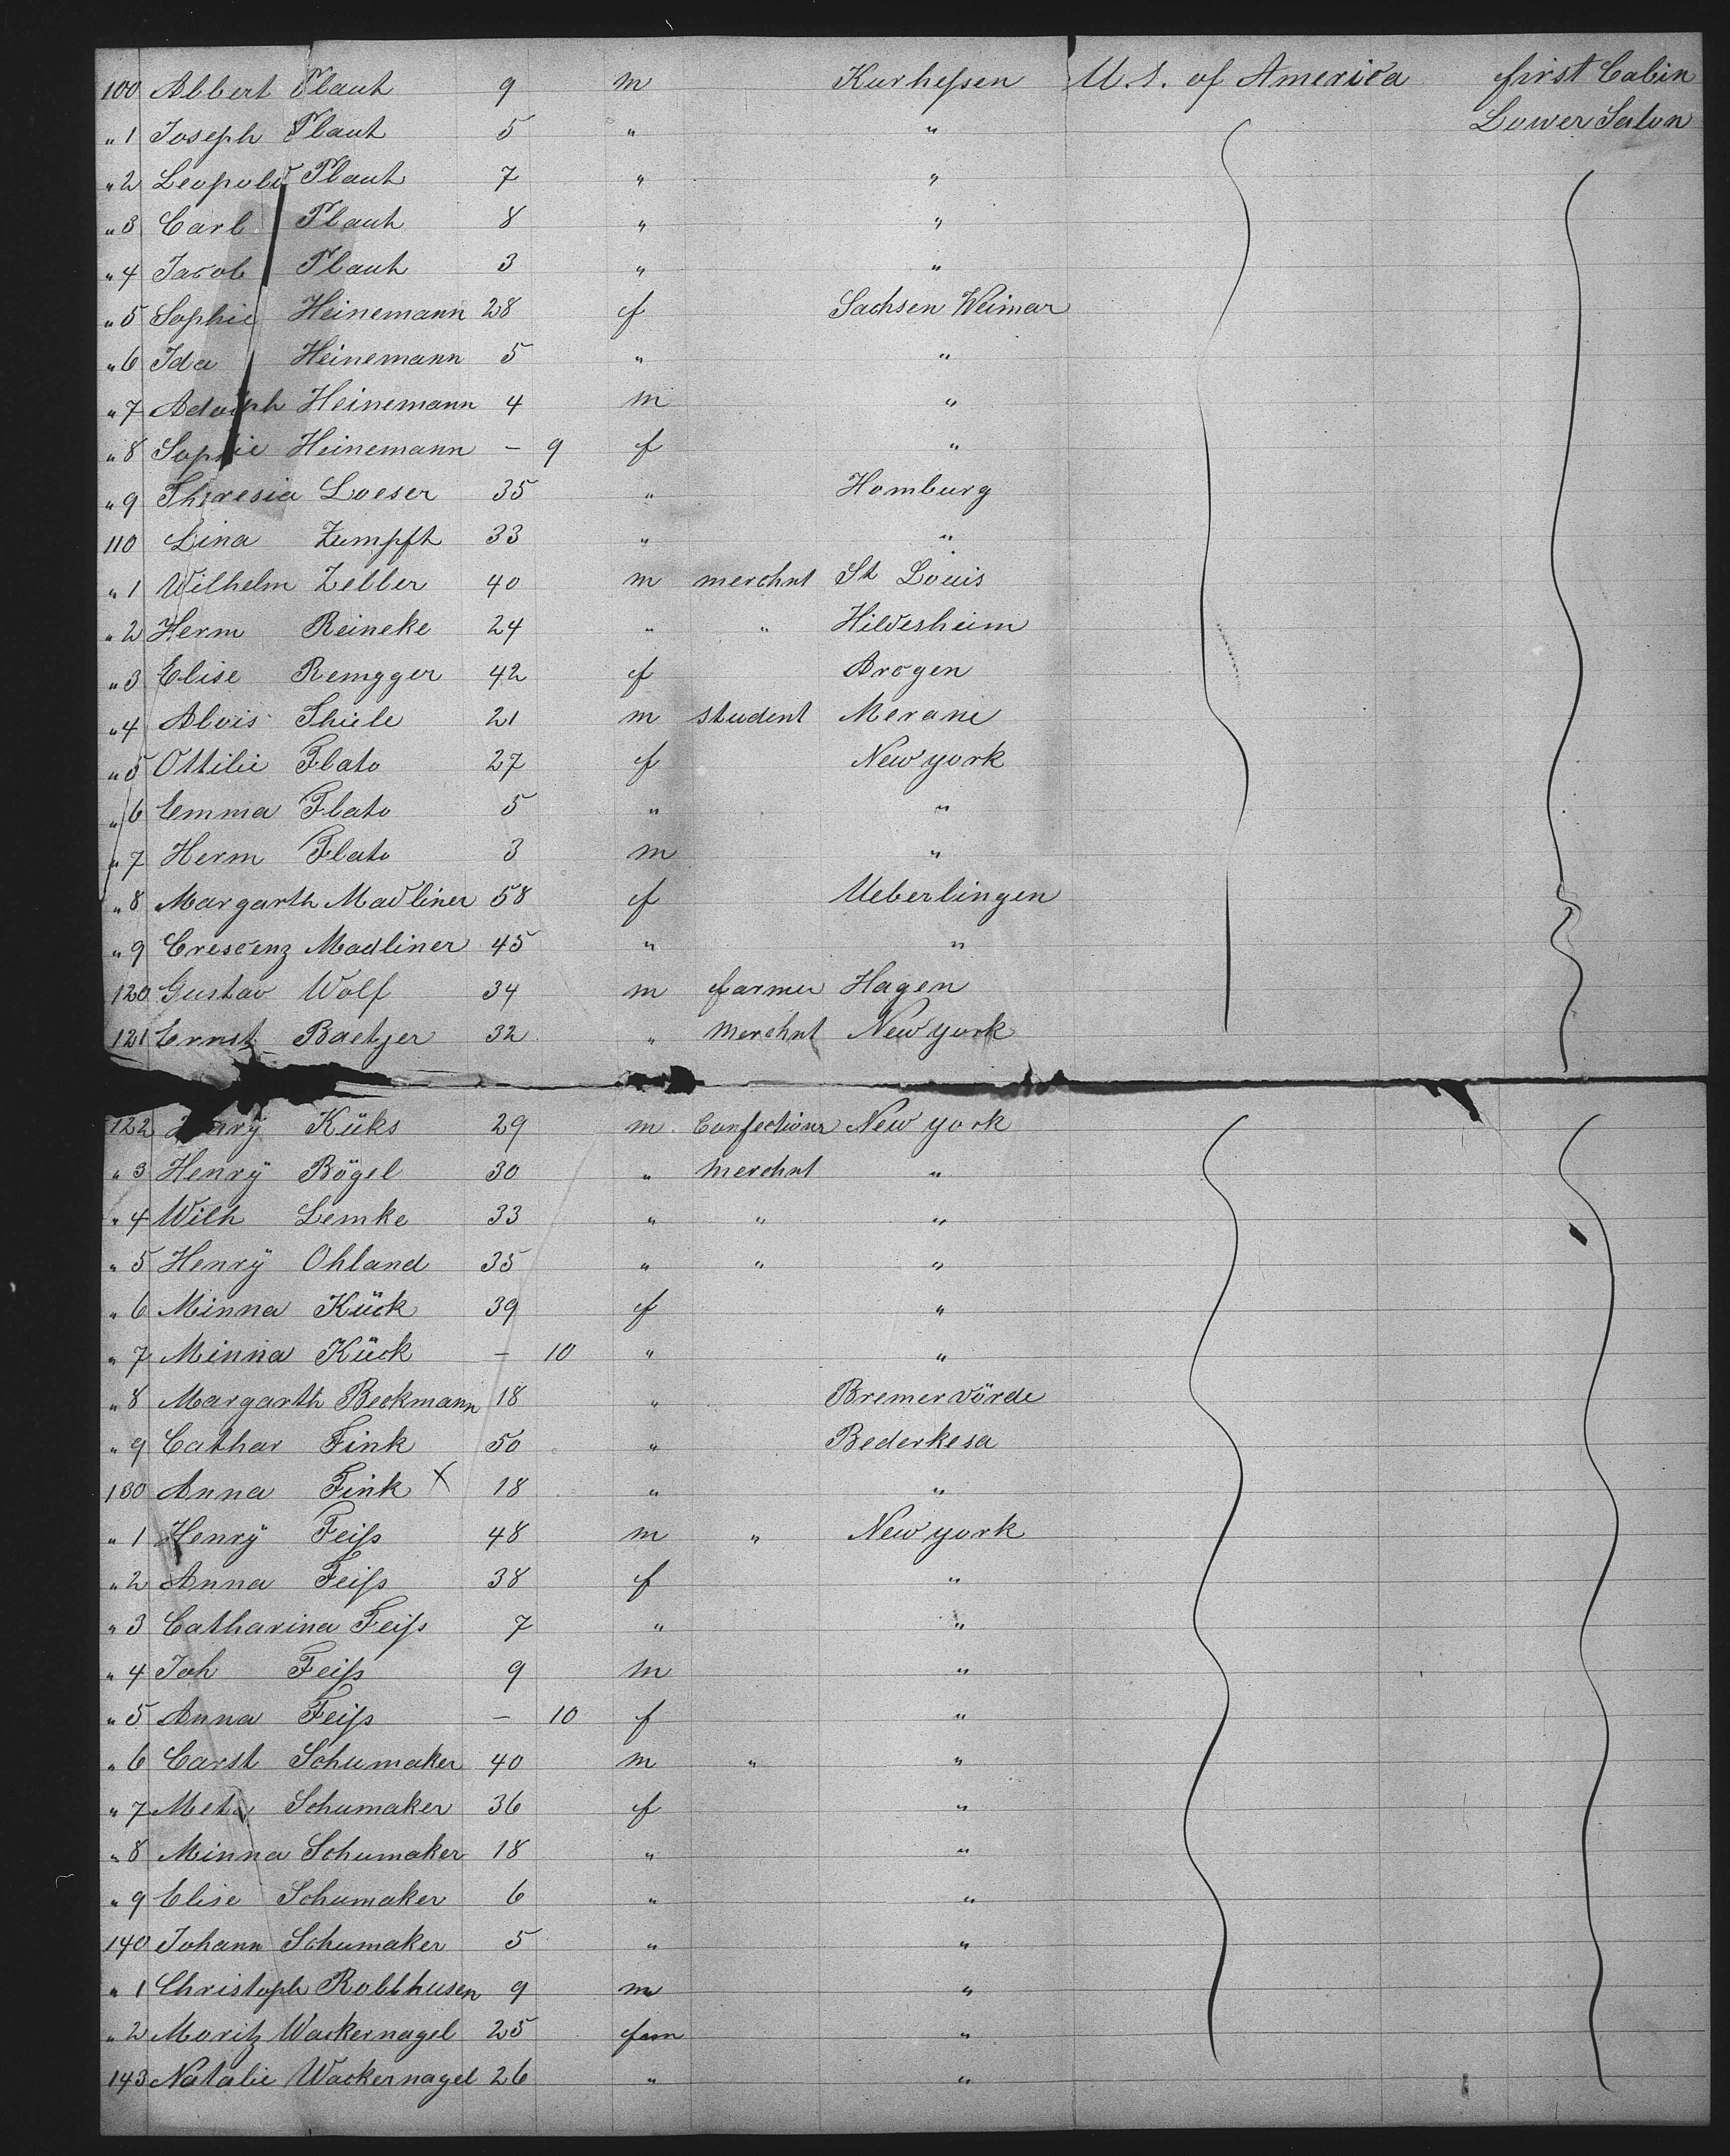 100 Albert Plaut 9 m Kurheſsen U.S. of America first Cabin
Lower Salon
" 1 Joseph Plaut 5 " "
" 2 Leopold Plaut 7 " "
" 3 Carl Plaut 8 " "
" 4 Jacob Plaut 3 " "
" 5 Sophie Heinemann 28 f Sachsen Weimar
" 6 Ida Heinemann 5 " "
" 7 Adolph Heinemann 4 m "
" 8 Sophie Heinemann - 9 f "
" 9 Theresia Loeser 35 " Homburg
110 Lina Zumpft 33 " "
" 1 Wilhelm Zeller 40 m merchnt St Louis
" 2 Herm Reineke 24 " " Hildesheim
" 3 Elise Remgger 42 f Arogen
" 4 Alois Thiele 21 m student Merane
" 5 Ottilie Flato 27 f New york
" 6 Emma Flato 5 " "
" 7 Herm Flato 3 m "
" 8 Margarth Madliner 58 f Ueberlingen
" 9 Crescenz Madliner 45 " "
120 Gustav Wolf 34 m farmer Hagen
121 Ernst Baetjer 32 " merchnt New york
122 Küks 29 m Confectionr New york
" 3 Henrÿ Bögel 30 " merchnt "
" 4 Wilh Lemke 33 " " "
" 5 Henrÿ Ohland 35 " " "
" 6 Minna Kück 39 f "
" 7 Minna Kück - 10 " "
" 8 Margarth Beckmann 18 " Bremervörde
" 9 Cathar Fink 50 " Bederkesa
130 Anna Fink X 18 " "
" 1 Henrÿ Feiſs 48 m " New york
" 2 Anna Feiſs 38 f "
" 3 Catharina Feiſs 7 " "
" 4 Joh Feiſs 9 m "
" 5 Anna Feiſs - 10 f "
" 6 Carst Schumaker 40 m " "
" 7 Meta Schumaker 36 f "
" 8 Minna Schumaker 18 " "
" 9 Elise Schumaker 6 " "
140 Johann Schumaker 5 " "
" 1 Christoph Robbhusen 9 m "
" 2 Moritz Wackernagel 25 fam "
143 Natalie Wackernagel 26 " "